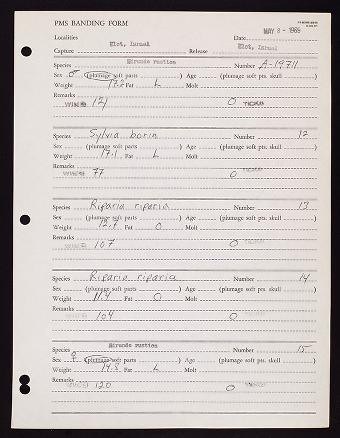 PMS BANDING FORM
Localities Date MAY 8 - 1969
Eiot, Israel Eiot, Israel
Capture Release
Species Hirundo rustica Number A-19711
Sex ♂ (plumage soft parts ) Age (plumage soft pts. skull )
Weight 17.2 Fat L Molt
Remarks
WING 121 0 TICKS
Species Sylvia borin Number 12
Sex (plumage soft parts ) Age (plumage soft pts. skull )
Weight 17.1 Fat L Molt
Remarks
WING 77 0 TICKS
Species Riparia riparia Number 13
Sex (plumage soft parts ) Age (plumage soft pts. skull )
Weight 12.4 Fat 0 Molt
Remarks
WING 107 0 TICKS
Species Riparia riparia Number 14
Sex (plumage soft parts ) Age (plumage soft pts. skull )
Weight 11.4 Fat 0 Molt
Remarks
WING 104 0 TICKS
Species Hirundo rustica Number 15
Sex ♀ (plumage soft parts ) Age (plumage soft pts. skull )
Weight 14.8 Fat L Molt
Remarks
WING 120 0 TICKS